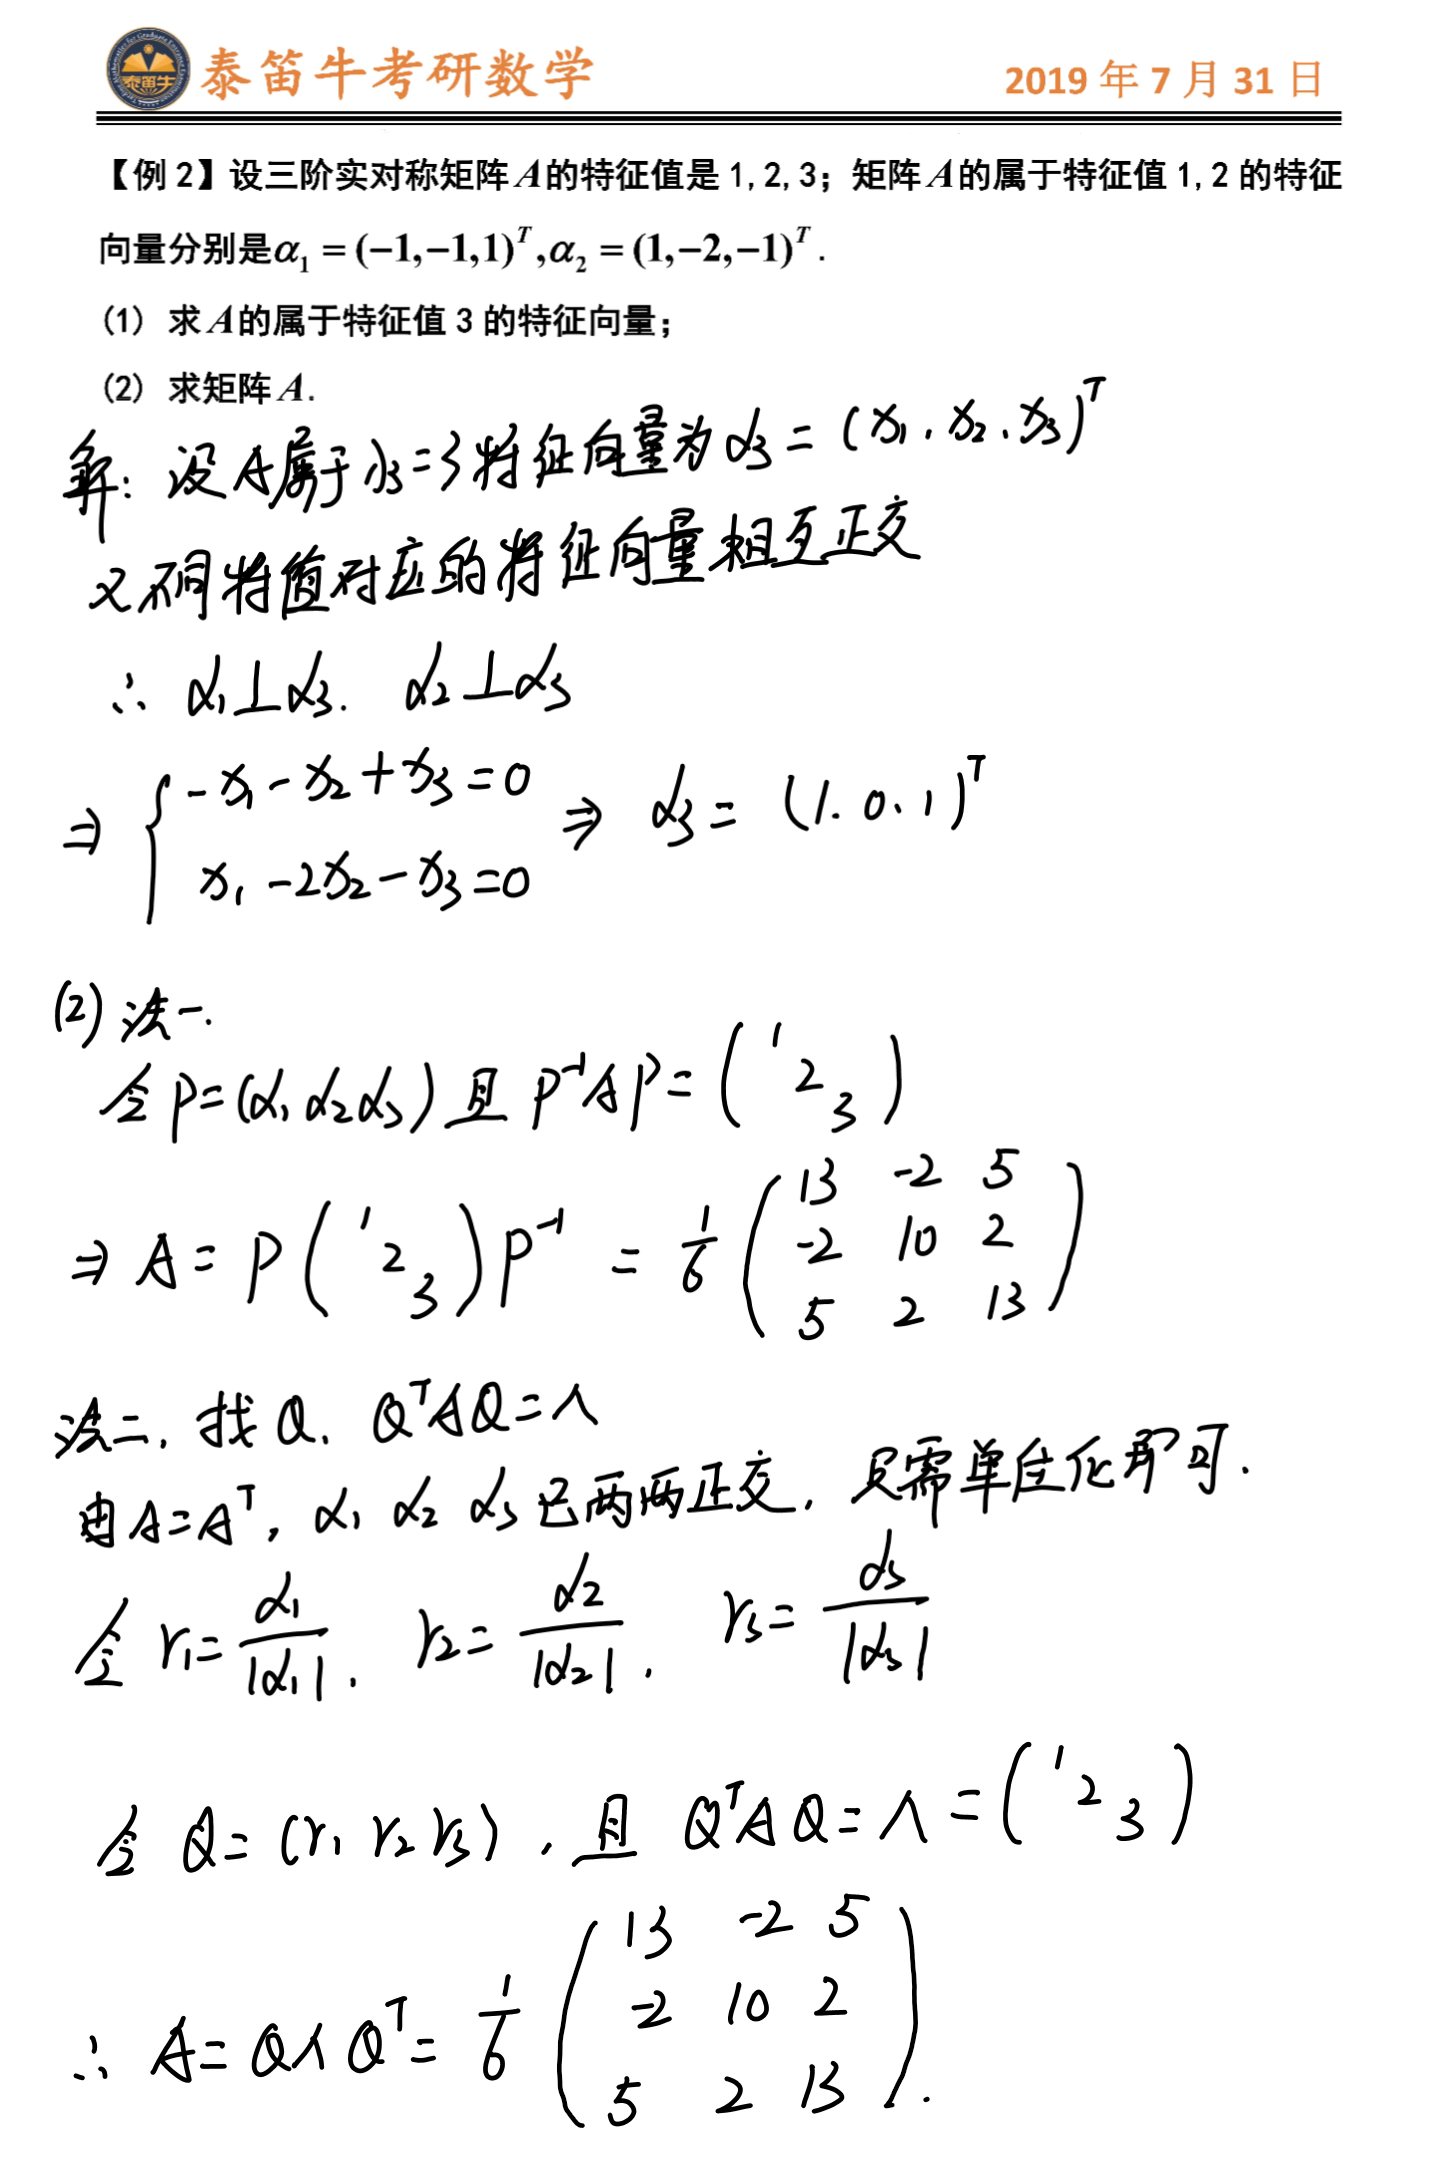 泰笛牛考研数学 2019 年 7 月 31 日
【例 2】设三阶实对称矩阵 A 的特征值是 1,2,3；矩阵 A 的属于特征值 1,2 的特征
向量分别是 α₁ = (−1,−1,1)ᵀ, α₂ = (1,−2,−1)ᵀ.
(1) 求 A 的属于特征值 3 的特征向量；
(2) 求矩阵 A.
解: 设A属于λ₃=3特征向量为 α₃ = (x₁, x₂, x₃)ᵀ
又不同特值对应的特征向量相互正交
∴ α₁⊥α₃. α₂⊥α₃
⇒ { -x₁ - x₂ + x₃ = 0
x₁ - 2x₂ - x₃ = 0 ⇒ α₃ = (1, 0, 1)ᵀ
(2) 法一.
令 P=(α₁ α₂ α₃) 且 P⁻¹AP = (1 2 3)
⇒ A = P (1 2 3) P⁻¹ = 1/6 (13 -2 5
-2 10 2
5 2 13)
法二, 找 Q, QᵀAQ=Λ
由A=Aᵀ, α₁ α₂ α₃ 已两两正交, 只需单位化即可.
令 r₁ = α₁/|α₁|, r₂ = α₂/|α₂|, r₃ = α₃/|α₃|
令 Q = (r₁ r₂ r₃), 且 QᵀAQ = Λ = (1 2 3)
∴ A = QΛQᵀ = 1/6 (13 -2 5
-2 10 2
5 2 13).